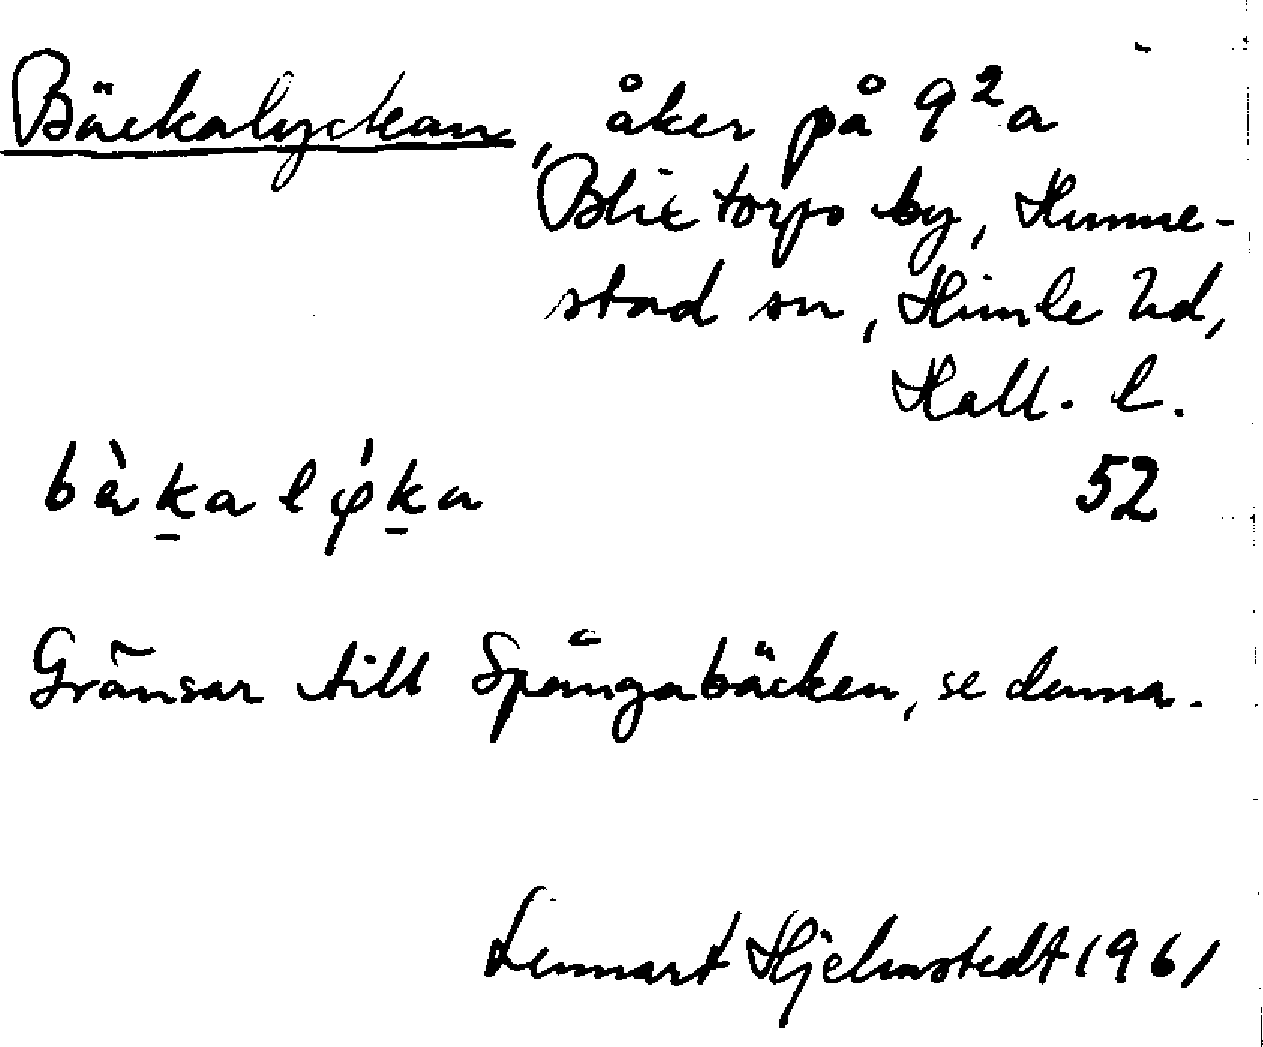 Bäckalyckan, åker på 9²a
Blixtorps by, Hunne-
stad sn, Himle hd,
Hall. l.
bàk̠a lφ́k̠a 52
Gränsar till Spångabäcken, se denna.
Lennart Hjelmstedt 1961